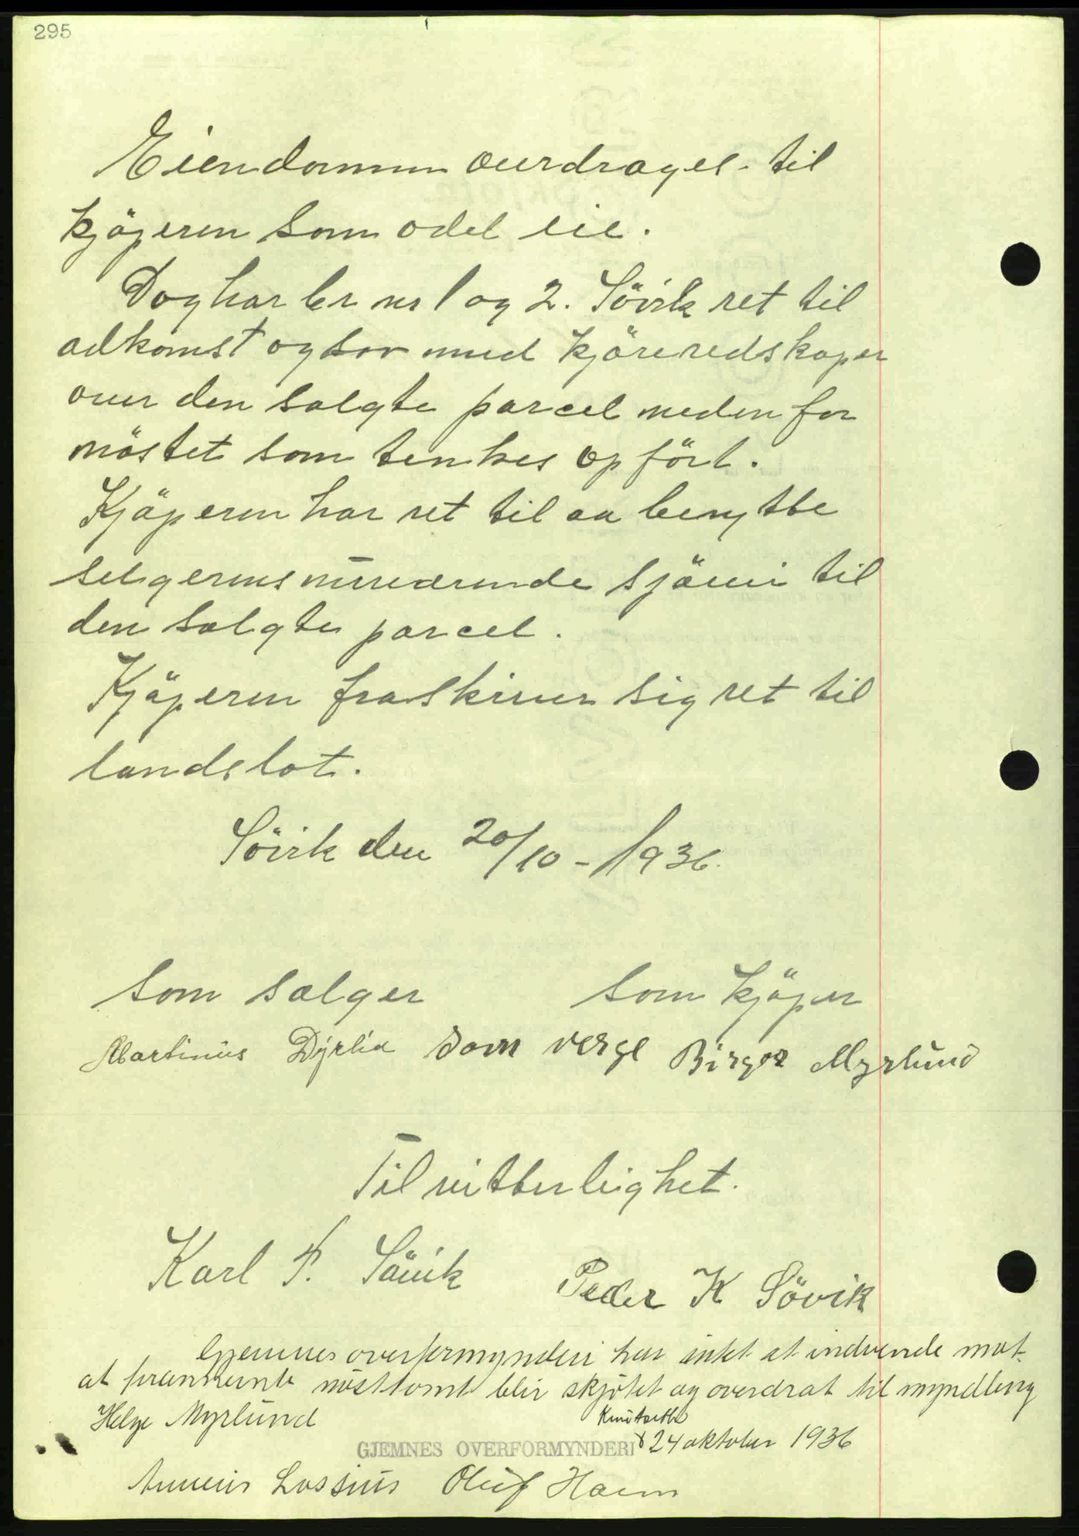 295
Eiendommen overdrages til
kjøperen som odel eie.
Dog har br nr 1 og 2. Sövik ret til
adkomst og hav med kjöreredskaper
over den solgte parcel neden for
nöstet som tenkes opfört.
Kjöperen har ret til aa benytte
selgerens nuværende sjövei til
den solgte parcel.
Kjöperen fraskriver sig ret til
landslot.
Sövik den 20/10-1936.
Som sælger Som kjöper
Martinus Dyrlia som verge Birger Myrlund
Til vitterlighet.
Karl P. Sövik Peder K Sövik
Gjemnes overformynderi har intet at indvende mot
at fornevnte nösttomt blir skjötet og overdrat til myndling
Helge Myrlund
Knutseth
GJEMNES OVERFORMYNDERI 24 oktober 1936
Lossius Oluf